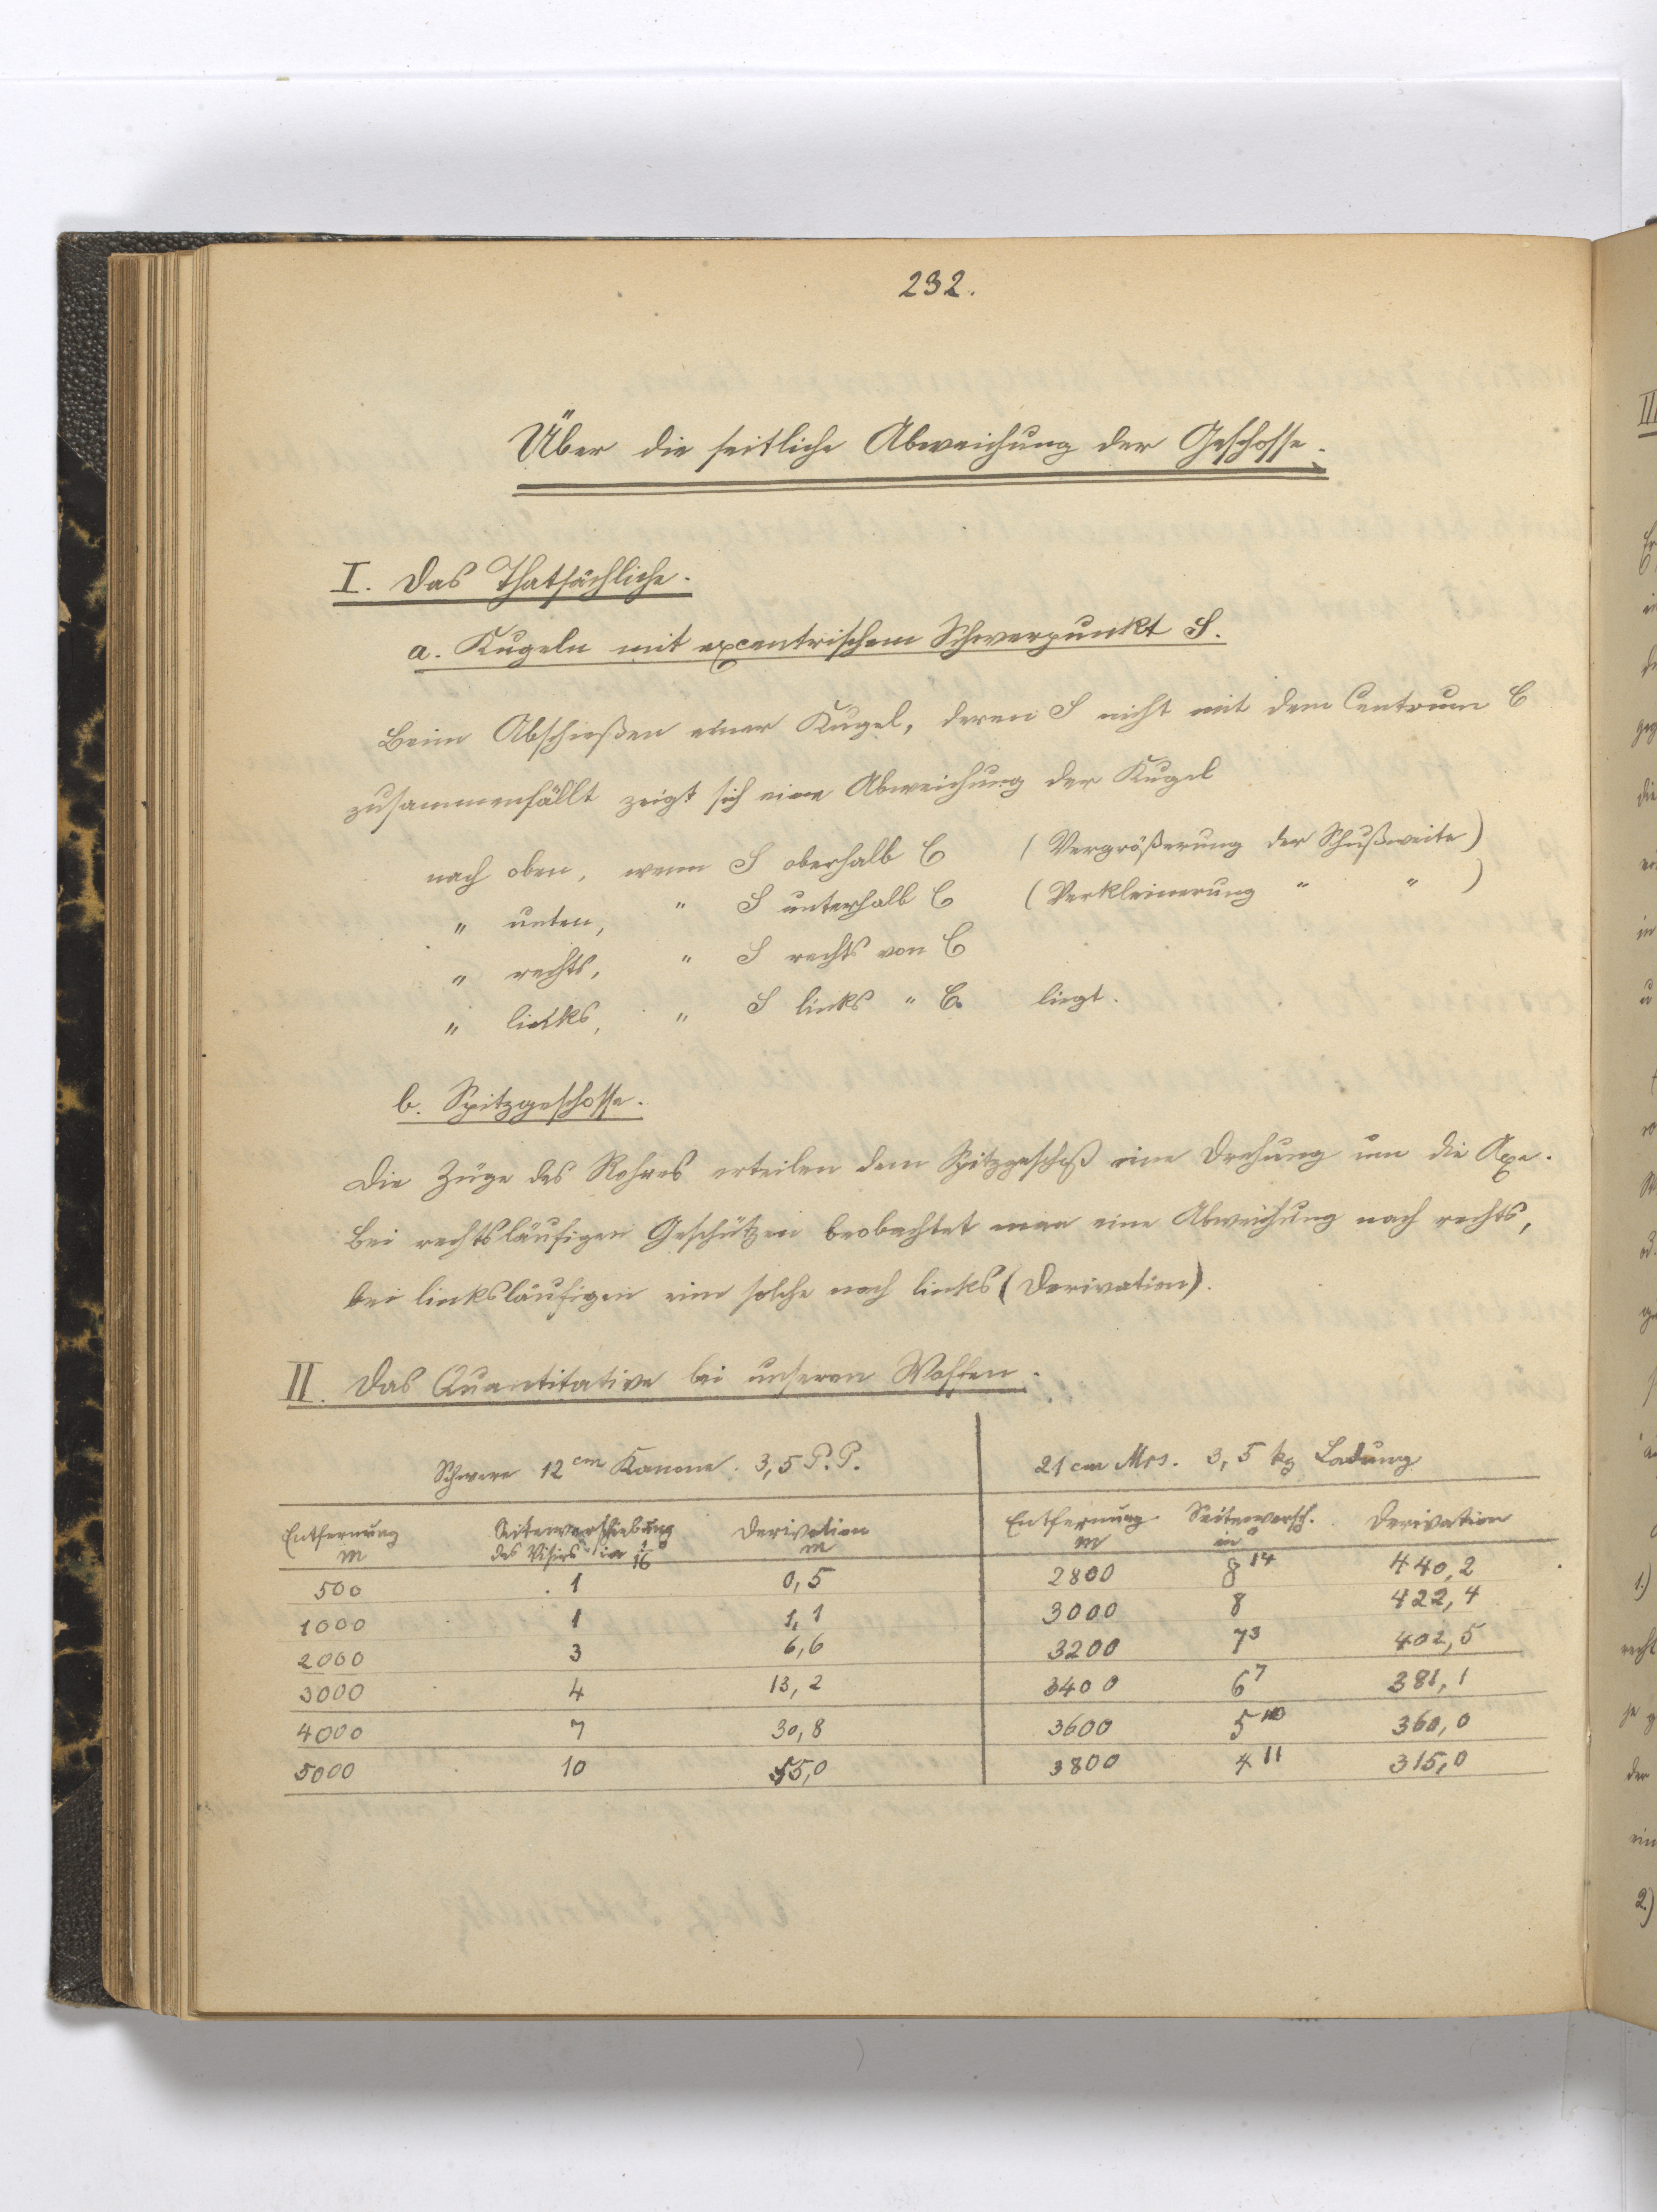 232.
Über die seitliche Abweichung der Geschosse.
I. Das Thatsächliche.
a. Kugeln mit excentrischem Schwerpunkt S.
Beim Abschießen einer Kugel, deren S nicht mit dem Centrum C
zusammenfällt zeigt sich eine Abweichung der Kugel
nach oben, wenn S oberhalb C (Vergrößerung der Schußweite)
" unten, " S unterhalb C (Verkleinerung " " )
" rechts, " S rechts von C
" links, " S links " C. liegt.
b. Spitzgeschosse.
Die Züge des Rohres erteilen dem Spitzgeschoß eine Drehung um die Axe.
Bei rechtsläufigen Geschützen beobachtet man eine Abweichung nach rechts,
bei linksläufigen eine solche nach links (Derivation).
II. Das Quantitative bei unseren Waffen.
Schwere 12 cm Kanone. 3,5 P. P. 21 cm Mrs. 3,5 kg Ladung
Entfernung Seitenverschiebung Derivation Entfernung Seitenversch. Derivation
m des Visirs in 1/16° m m in °
500 1 0,5 2800 8 14 440,2
1000 1 1,1 3000 8 422,4
2000 3 6,6 3200 7 3 402,5
3000 4 13,2 3400 6 7 381,1
4000 7 30,8 3600 5 10 360,0
5000 10 55,0 3800 4 11 315,0
III
1.)
recht
je g
der
ein
2.)